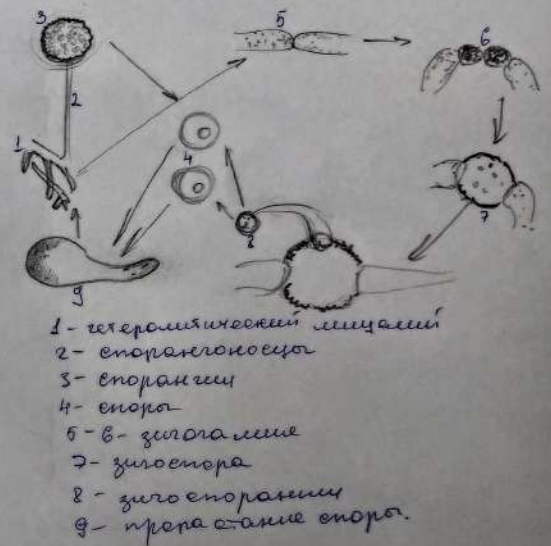 3
5
6
2
1
4
7
8
9
1 - гетеролитический мицалий
2 - спорангоносцы
3 - спорангии
4 - споры
5 - 6 - зигогалия
7 - зигоспора
8 - зигоспорангии
9 - пропастание споры.